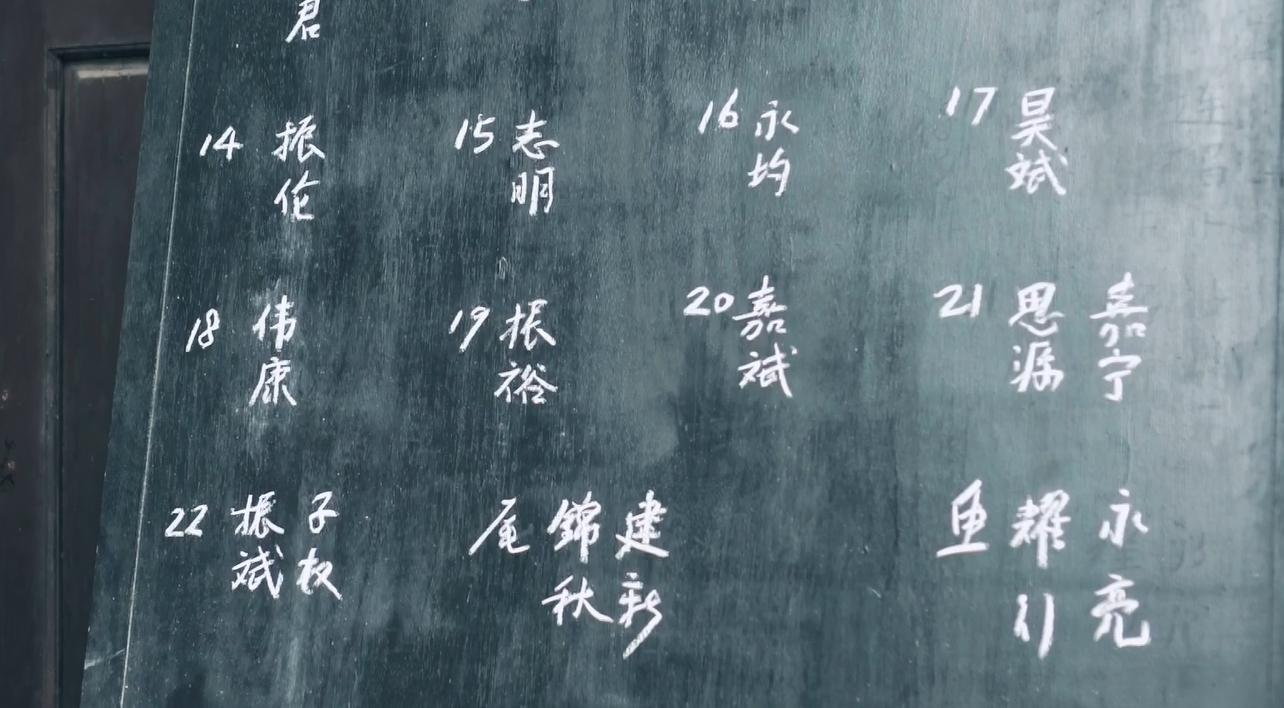 君
14 振伦
15 志明
16 永均
17 昊斌
18 伟康
19 振裕
20 嘉斌
21 思漏 嘉宁
22 振斌 子权
尾 錦秋 建新
鱼 耀川 永亮